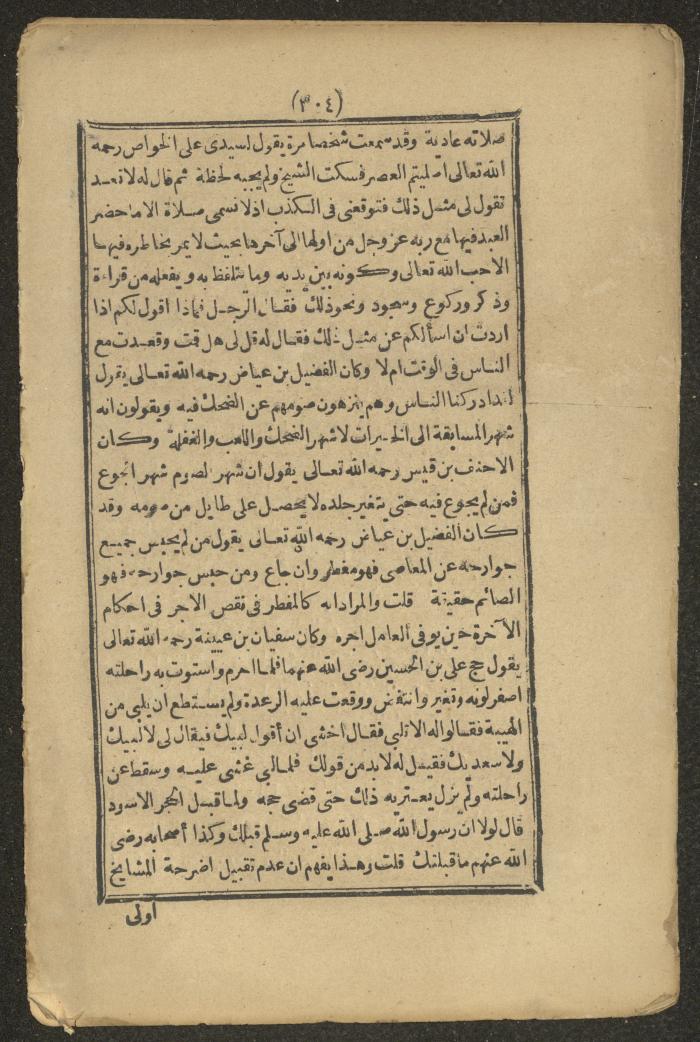 (٣٠٤)
صلاته عادية وقد سمعت شخصا مرة يقول لسيدى على الخواص رحمه
الله تعالى أصليتم العصر فسكت الشيخ ولم يجبه لحظة ثم قال له لا تعد
تقول لى مثل ذلك فتوقعنى فى الكذب اذ لا نسمى صلاة الا ما حضر
العبد فيها مع ربه عز وجل من اولها الى آخرها بحيث لا يمر بخاطره فيها
الاحب الله تعالى وكونه بين يديه وما يتلفظ به ويفعله من قراءة
وذكر وركوع وسجود ونحو ذلك فقال الرجل فماذا اقول لكم اذا
اردت ان اسألكم عن مثل ذلك فقال له قل لى هل قمت وقعدت مع
الناس فى الوقت ام لا وكان الفضيل بن عياض رحمه الله تعالى يقول
لقد ادركنا الناس وهم ينزهون صومهم عن الضحك فيه ويقولون انه
شهر المسابقة الى الخيرات لا شهر الضحك واللعب والغفلة وكان
الاحنف بن قيس رحمه الله تعالى يقول ان شهر الصوم شهر الجوع
فمن لم يجوع فيه حتى يتغير جلده لا يحصل على طايل من صومه وقد
كان الفضيل بن عياض رحمه الله تعالى يقول من لم يحبس جميع
جوارحه عن المعاصى فهو مفطر وان جاع ومن حبس جوارحه فهو
الصائم حقيقة قلت والمراد انه كالمفطر فى نقص الاجر فى احكام
الآخرة حين يوفى العامل اجره وكان سفيان بن عيينة رحمه الله تعالى
يقول حج على بن الحسين رضى الله عنهما فلما احرم واستوت به راحلته
اصفر لونه وتغير وانتفض ووقعت عليه الرعدة ولم يستطع ان يلبى من
الهيبة فقالوا له الا تلبى فقال اخشى ان أقول لبيك فيقال لى لا لبيك
ولا سعديك فقيل له لا بد من قولك فلما لبى غشى عليه وسقط عن
راحلته ولم يزل يعتريه ذلك حتى قضى حجه ولما قبل الحجر الاسود
قال لولا ان رسول الله صلى الله عليه وسلم قبلك وكذا أصحابه رضى
الله عنهم ما قبلتك قلت وهذا يفهم ان عدم تقبيل اضرحة المشايخ
اولى